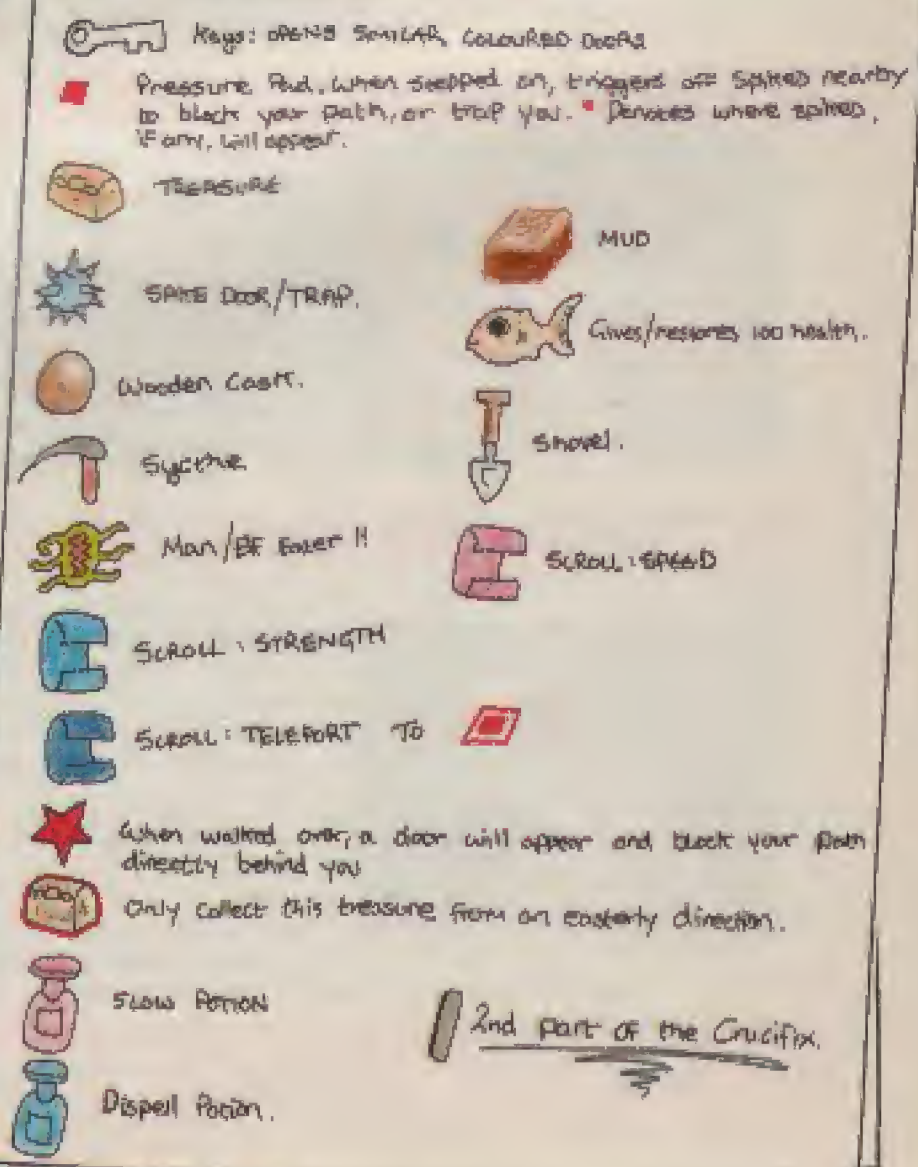 Keys: OPENS SIMILAR COLOURED DOORS
Pressure Pad, when stepped on, triggers off spikes nearby
to block your path, or trap you. * Denotes where spikes,
if any, will appear.
TREASURE
MUD
SPIKE DOOR/TRAP.
Gives/restores 100 health.
Wooden
Shovel.
Sycthe
Man/ Eater !!
SCROLL : SPEED
SCROLL : STRENGTH
SCROLL : TELEPORT TO
When walked over, a door will appear and block your path
directly behind you
Only collect this treasure from an easterly direction.
SLOW POTION
2nd Part OF the Crucifix.
Dispell Potion.